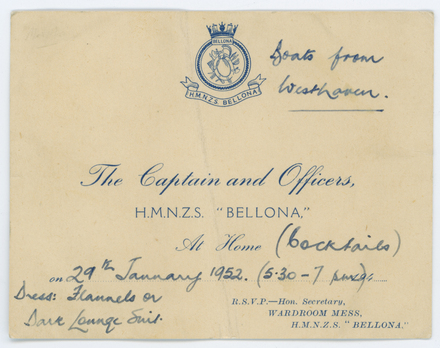 BELLONA
H.M.N.Z.S. BELLONA
Boats from
Westhaven.
The Captain and Officers,
H.M.N.Z.S. "BELLONA,"
At Home (Cocktails)
on 29th January 1952. (5·30-7 pm)
Dress: Flannels or
Dark Lounge Suit.
R.S.V.P.—Hon. Secretary,
WARDROOM MESS,
H.M.N.Z.S. "BELLONA."